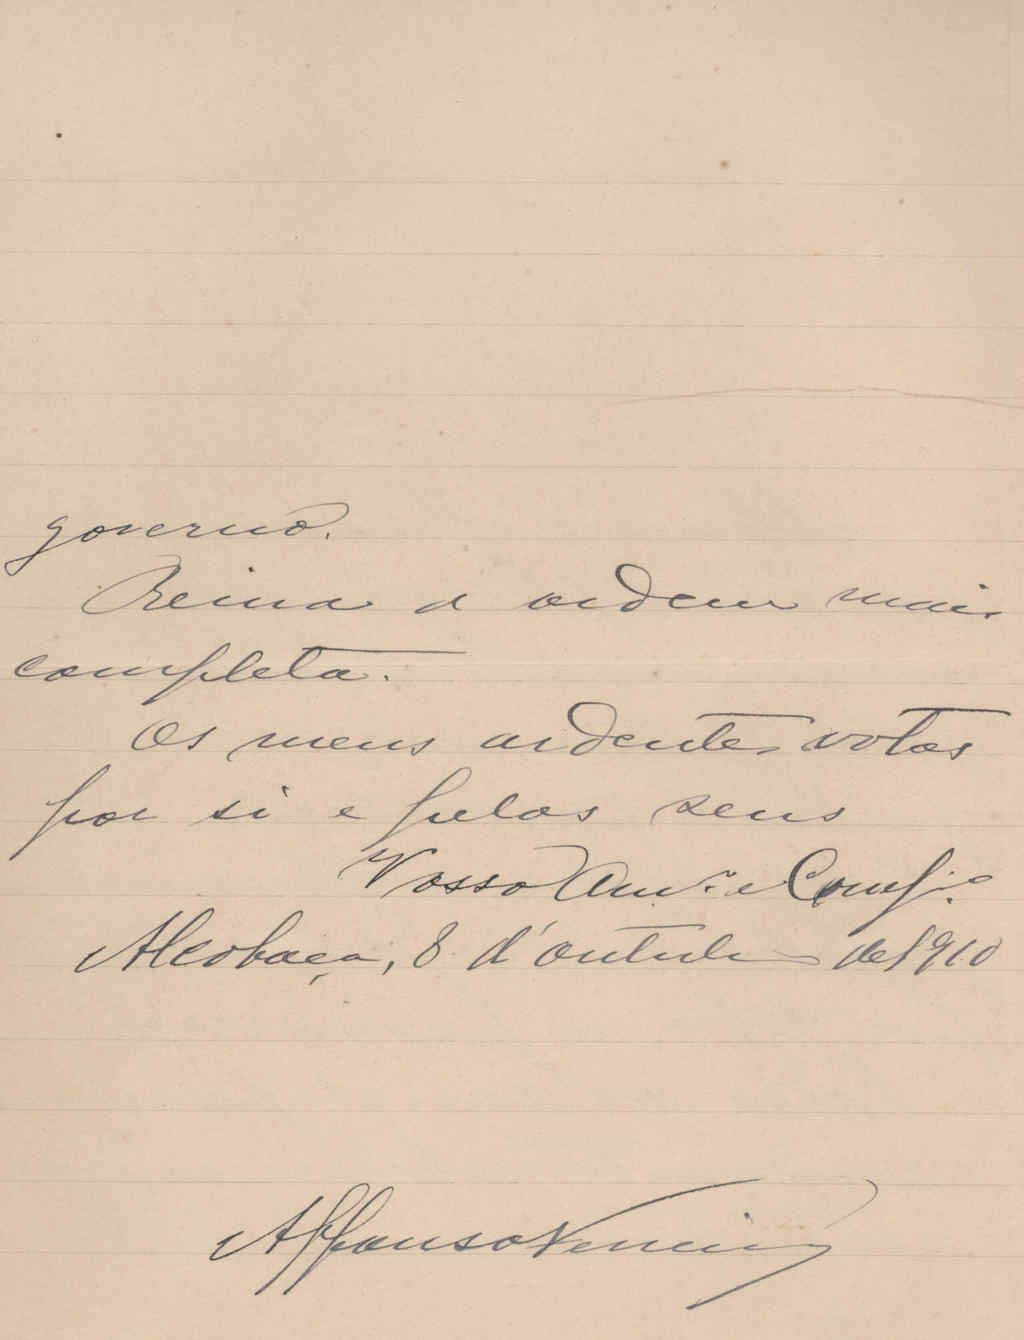 governo.
Reina a ordem mais
completa.
Os meus ardentes votos
por si e pelos seus
Vosso Am.º e Comp.º
Alcobaça, 8 d'outubro de 1910
Affonso Ferreira